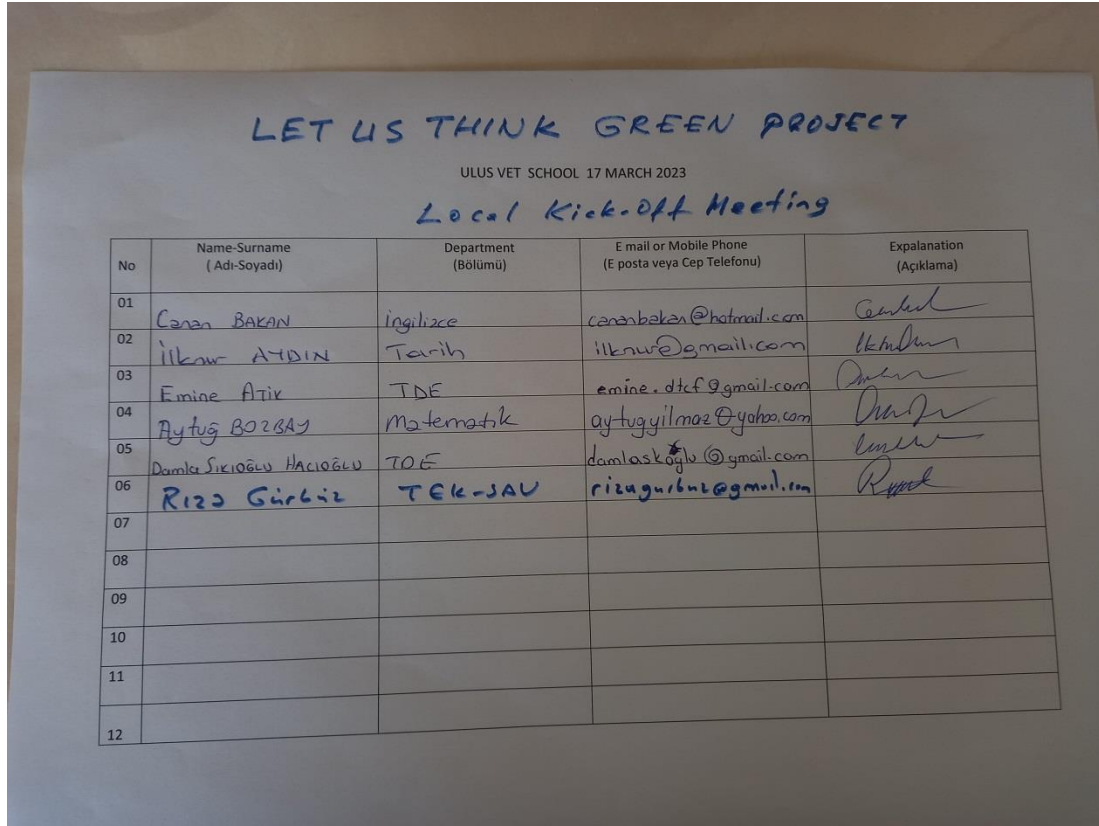 LET US THINK GREEN PROJECT
ULUS VET SCHOOL 17 MARCH 2023
Local Kick-Off Meeting
No Name-Surname Department E mail or Mobile Phone Expalanation
( Adı-Soyadı) (Bölümü) (E posta veya Cep Telefonu) (Açıklama)
01 Canan BAKAN İngilizce cananbakan@hotmail.com
02 İlknur AYDIN Tarih ilknur@gmail.com
03 Emine ATİK TDE emine.dtcf@gmail.com
04 Aytuğ BOZBAY Matematik aytugyilmaz@yahoo.com
05 Damla SIKIOĞLU HACIOĞLU TDE @gmail.com
06 Rıza Gürbüz TEK-SAV rizagurbuz@gmail.com
07
08
09
10
11
12